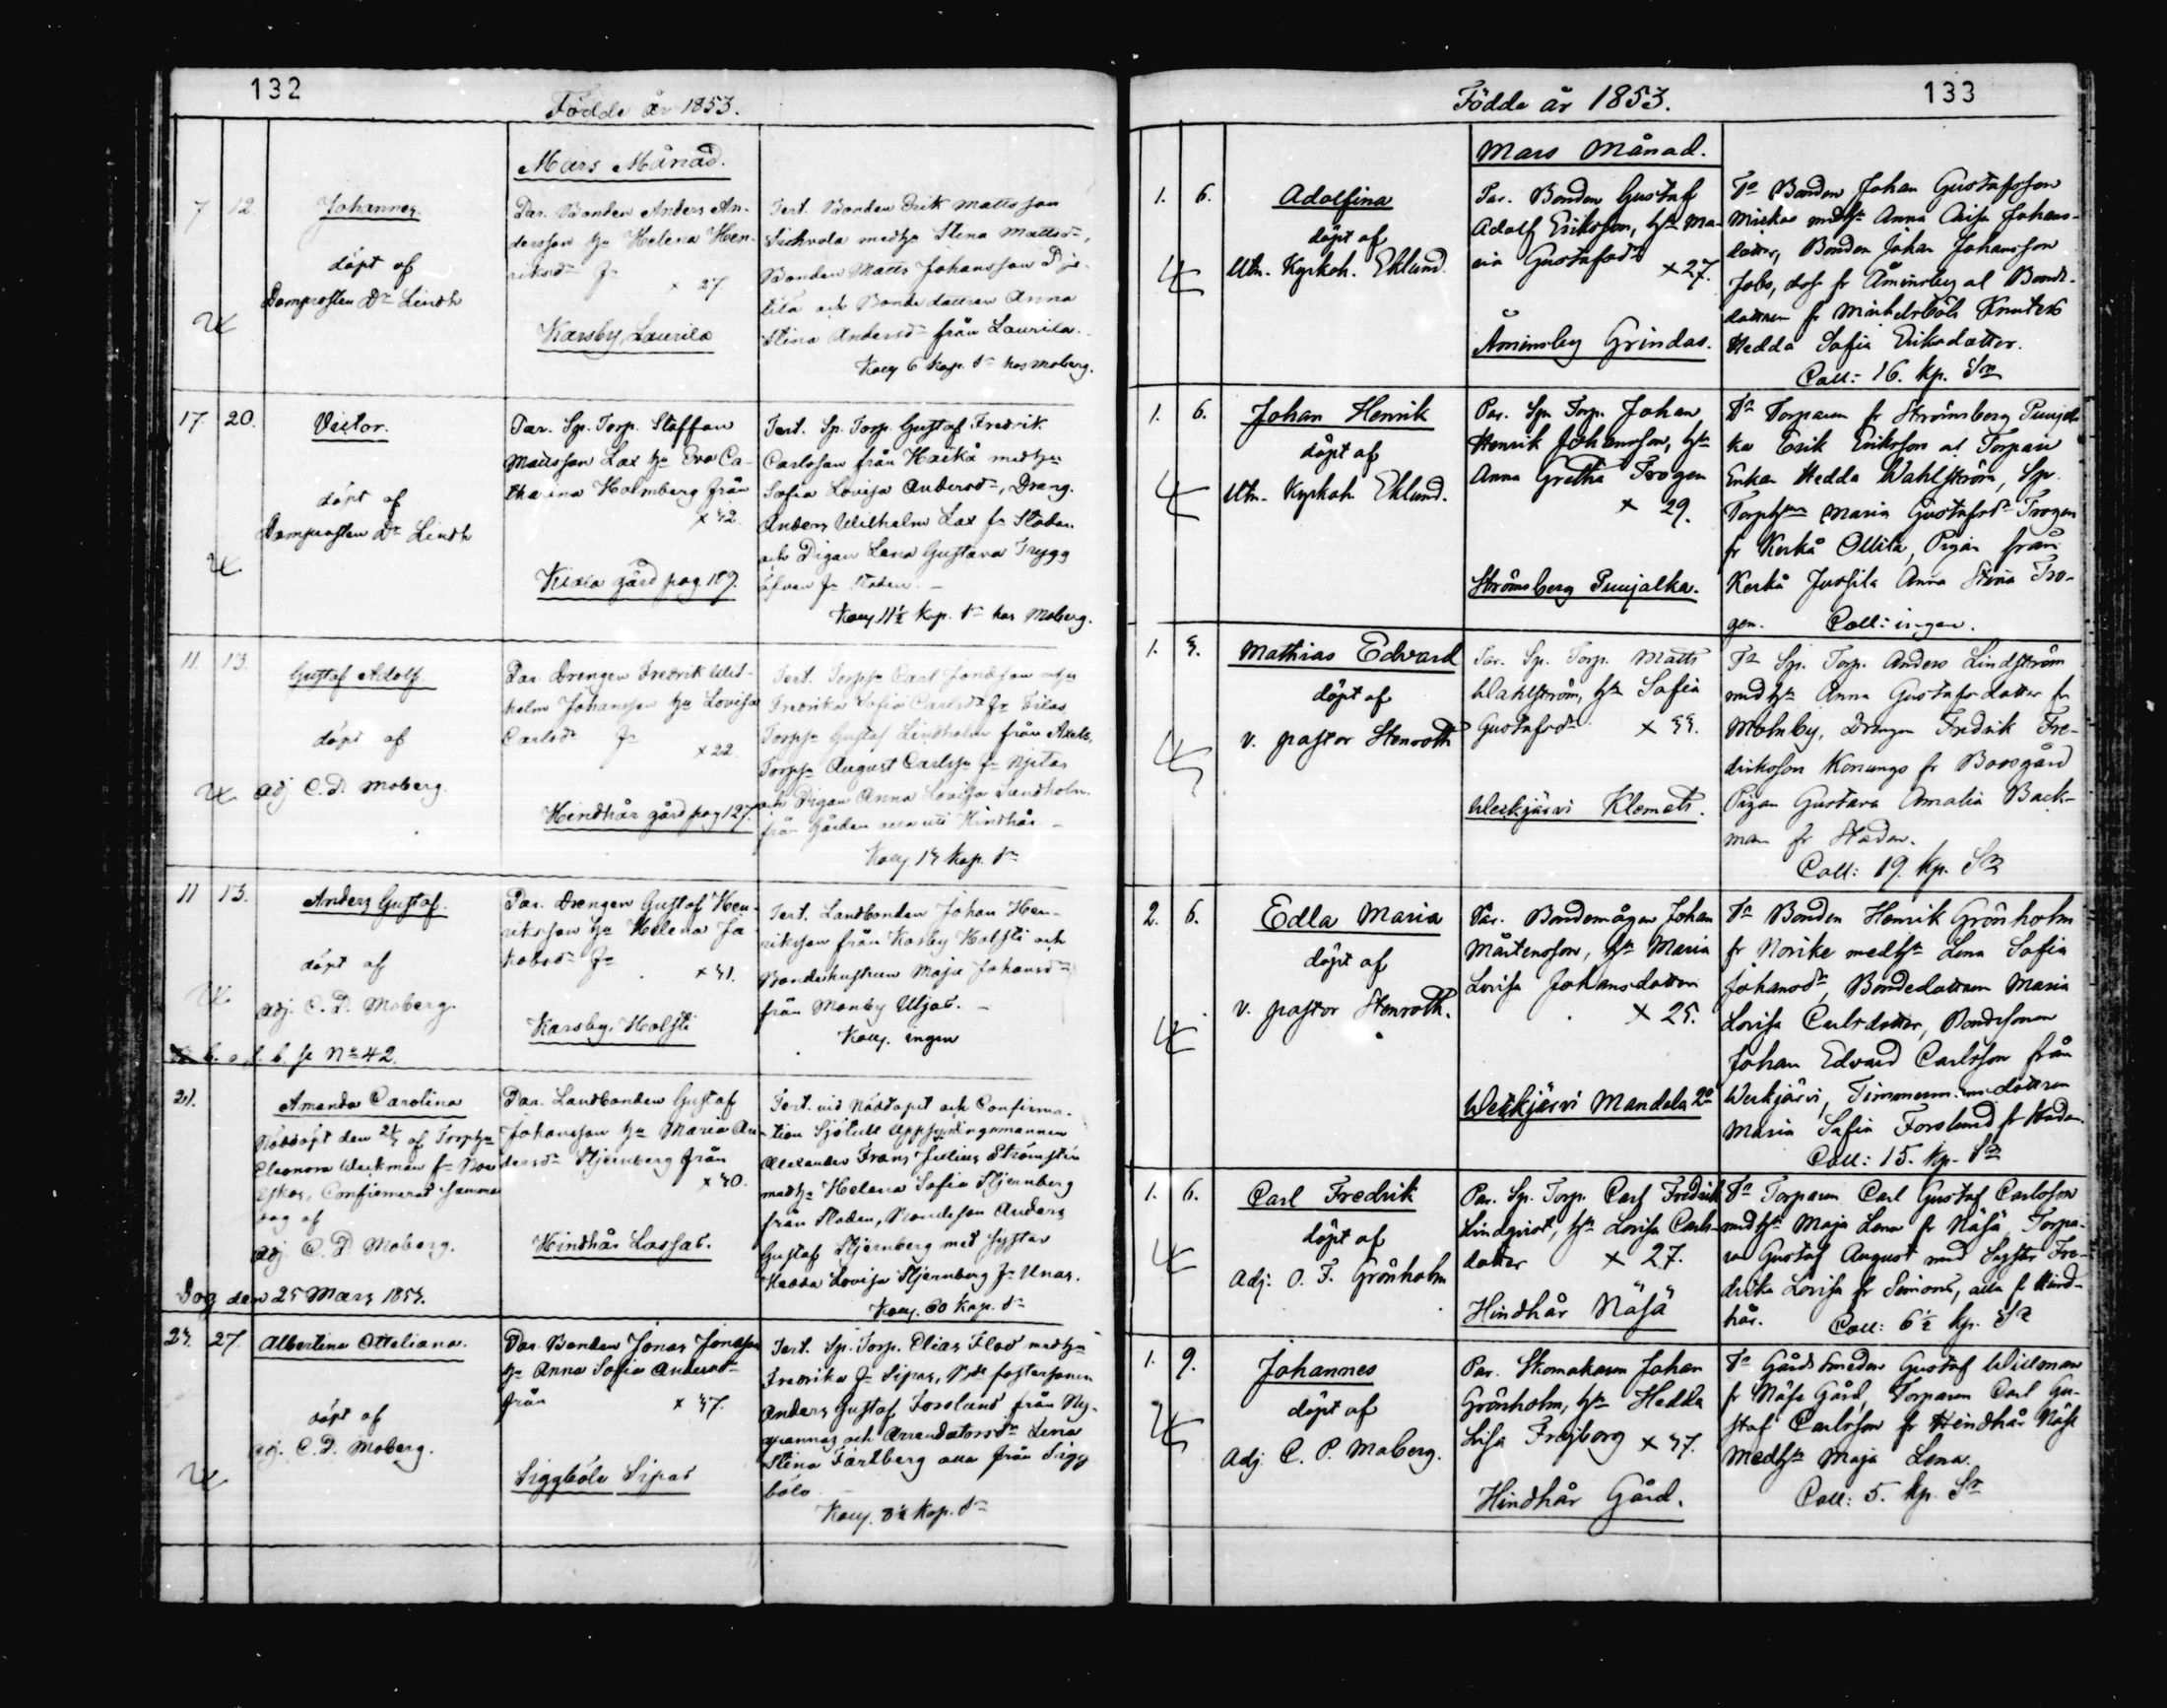 132
Födde år 1853.
Mars Månad.
7 12.
Johannes.
döpt af
Domprosten Dr Lindh
Par. Bonden Anders An-
dersson hu Helena Hen-
riksdr fr
x 27
Karsby, Laurila
Test. Bonden Erik Mattsson
Sickvola medhu Stina Mattsdr,
Bonden Matts Johansson
och Bondedottren Anna
Stina Andersdr från Laurila.
Koll 6 kop. Sr hos Moberg.
17. 20.
Victor.
döpt af
Domprosten Dr Lindh
Par. Sp. Torp. Staffan
Mattsson Lax hu Eva Ca-
tharina Holmberg från
x 42.
Kiala gård pag 189.
Test. Sp. Torp. Gustaf Fredrik
Carlsson från Haikå medhu
Sofia Lovisa Andersdr, Dräng.
Anders Wilhelm Lax fr Staden
och Pigan Lena Gustava Trygg
äfven fr Staden. –
Koll 11½ kop. Sr hos Moberg.
11. 13.
Gustaf Adolf.
döpt af
adj C. P. Moberg.
Par. Drengen Fredrik Wil-
helm Johansson hu Lovisa
Carlsdr fr
x 22
Hindhår gård pag 127.
Test. Torpn Carl Jonasson mhu
Fredrika Sofia Carlsdr fr
Torpn Gustaf Lindholm från Axels,
Torpn August Carlsn fr Nietas
och Pigan Anna Lovisa Sundholm.
från Gården alla uti Hindhår –
Koll. 14 kop. Sr
11 13.
Anders Gustaf.
döpt af
adj. C. P. Moberg.
Par. Drengen Gustaf Hen-
riksson hu Helena Ja-
kobsdr fr
x 41.
Karsby, Holsti
Test. Landbonden Johan Hen-
riksson från Karsby Holsti och
Bondehustrun Maja Johansdr
från Manby Uljas. –
Koll. ingen
b. o. f. b. se No 42.
21.
Amanda Carolina
Nöddöpt den 21/3 af Torphu
Eleonora Weckman fr
Confirmerad samma
dag af
adj C. P. Moberg.
Par. Landbonden Gustaf
Johansson hu Maria An-
dersdr Stjernberg från
x 40.
Hindhår Lassas.
Test. vid Nöddopet och Confirma-
tion Sjötull Uppsyningsmannen
Alexander Frans Julius Strömsten
medhu Helena Sofia Stjernberg
från Staden, Bondeson Anders
Gustaf Stjernberg med syster
Hedda Lovisa Stjernberg fr Unas.
Koll. 60 Kop. Sr
Dog den 25 Mars 1853.
24. 27.
Albertina Otteliana.
döpt af
adj. C. P. Moberg.
Par. Bonden Jonas Jonasson
hu Anna Sofia Andersdr
från
x 47.
Siggböle Sipas
Test. Sp. Torp. Elias Flod medhu
Fredrika fr Sipas, Bde fostersonen
Anders Gustaf Forslund från Ny-
och Arrendatorsdr Lena
Stina Färtberg alla från Sigg
böle
Koll. 8½ kop. Sr
133
Födde år 1853.
Mars Månad.
1. 6.
Adolfina
döpt af
Utn. Kyrkoh. Eklund.
Par. Bonden Gustaf
Adolf Eriksson, hu Ma-
ria Gustafsdr
x 27.
Åminsby Grindas.
Tr Bonden Johan Gustafsson
Mickas medhu Anna Caisa Johans-
dotter, Bonden Johan Johansson
Jobs, fr Åminsby al Bonde-
dottren fr Mickelsböle Knuters
Hedda Sofia Eriksdotter.
Coll: 16. kp. Sr
1. 6.
Johan Henrik
döpt af
Utn. Kyrkoh. Eklund.
Par. Spn Torp. Johan
Henrik Johansson, hu
Anna Gretha Frogen
x 29.
Strömsberg Puujalka.
Tr Torparen fr Strömsberg Puujal-
ka Erik Eriksson al Torpare
Enkan Hedda Wahlström, Sp.
Torphun Maria Gustafsdr Frogen
fr Kerkå Ollila, Pigan från
Kerkå Jussila Anna Stina Fro-
gen. Coll: ingen.
1. 3.
Mathias Edvard
döpt af
v. pastor Stenroth
Par. Sp. Torp. Matts
Wahlström, hu Sofia
Gustafsdr x 33.
Weckjärvi Klemets.
Tr Sp. Torp. Anders Lindström
medhu Anna Gustafsdotter fr
Molnby, Drengen Fredrik Fre-
driksson Konungs fr Boosgård
Pigan Gustava Amalia Back-
man fr Staden.
Coll: 19. kp. Sr
2. 6.
Edla Maria
döpt af
v. pastor Stenroth.
Par. Bondemågen Johan
Mårtensson, hu Maria
Lovisa Johansdotter
x 25.
Weckjärvi Mandela 2a
Tr Bonden Henrik Grönholm
fr Norike medhu Lena Sofia
Johansdr, Bondedottren Maria
Lovisa Carlsdotter, Bondesonen
Johan Edvard Carlsson från
Weckjärvi, Timmerm. dottren
Maria Sofia Forslund fr Staden.
Coll: 15. kp. Sr
1. 6.
Carl Fredrik
döpt af
Adj: O. F. Grönholm
Par. Sp. Torp. Carl Fredrik
Lindqvist, hu Lovisa Carls-
dotter x 27.
Hindhår Näsä
Tr Torparen Carl Gustaf Carlsson
medhu Maja Lena fr Näsä, Torpa-
ren Gustaf August med Syster Fre-
drika Lovisa fr Simons, alla fr Hind-
hår. Coll: 6½ kp. Sr
1. 9.
Johannes
döpt af
Adj. C. P. Moberg.
Par. Skomakaren Johan
Grönholm, hu Hedda
Lisa Frejborg x 47.
Hindhår Gård.
Tr Gårds Smeden Gustaf Widman
fr Näse Gård, Torparen Carl Gu-
staf Carlsson fr Hindhår Näse
Medhu Maja Lena.
Coll: 5. kp. Sr